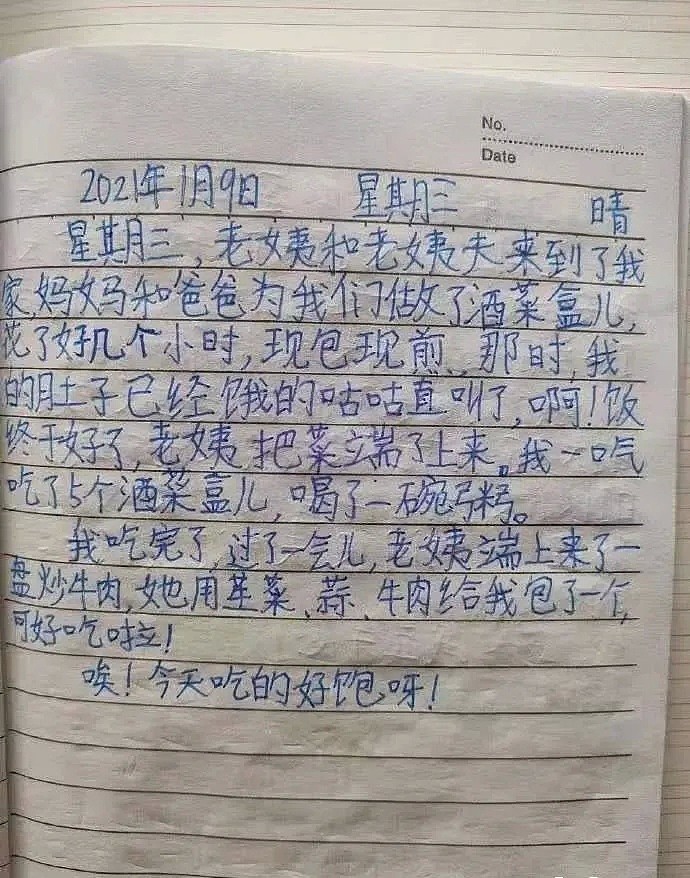 No.
Date
2021年1月9日 星期三 晴
星期三，老姨和老姨夫来到了我
家，妈妈和爸爸为我们做了酒菜盒儿，
花了好几个小时，现包现煎，那时，我
的肚子已经饿的咕咕直叫了，啊！饭
终于好了，老姨把菜端了上来。我一口气
吃了5个酒菜盒儿，喝了一碗粥。
我吃完了，过了一会儿，老姨端上来了一
盘炒牛肉，她用韭菜、蒜、牛肉给我包了一个，
可好吃啦！
唉！今天吃的好饱呀！